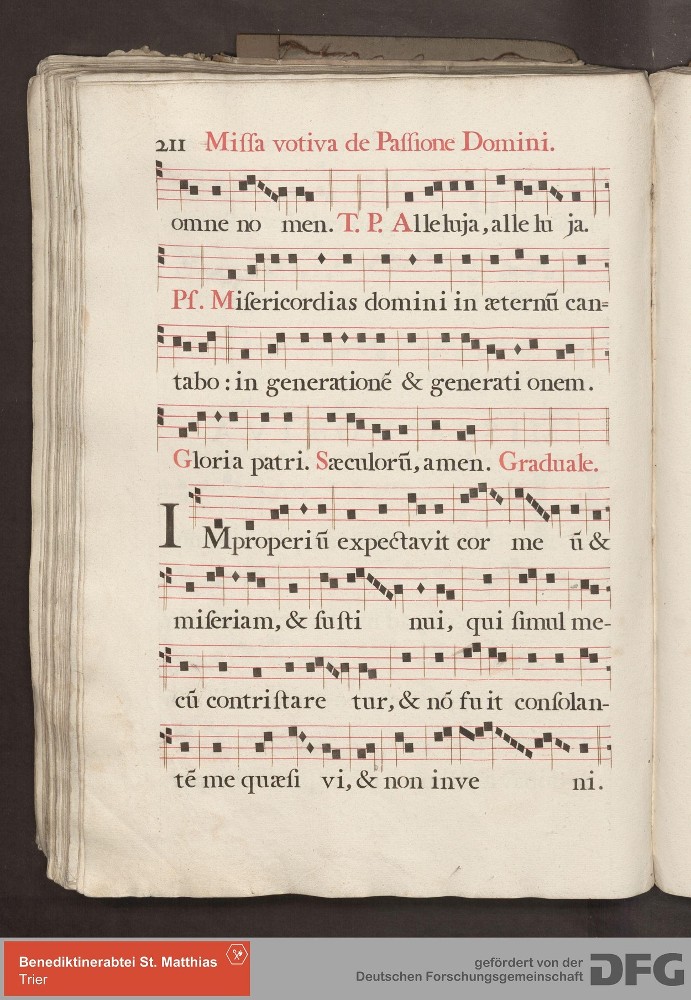 211 Miſſa votiva de Paſſione Domini.
omne no men. T. P. Alleluja, alle lu ja.
Pſ. Miſericordias domini in æternū can=
tabo : in generationē & generati onem.
Gloria patri. Sæculorū, amen. Graduale.
IMproperi ū expectavit cor me ū &
miſeriam, & ſuſti nui, qui ſimul me-
cū contriſtare tur, & nō fu it conſolan-
tē me quæſi vi, & non inve ni.
Benediktinerabtei St. Matthias
Trier
gefördert von der
Deutschen Forschungsgemeinschaft DFG